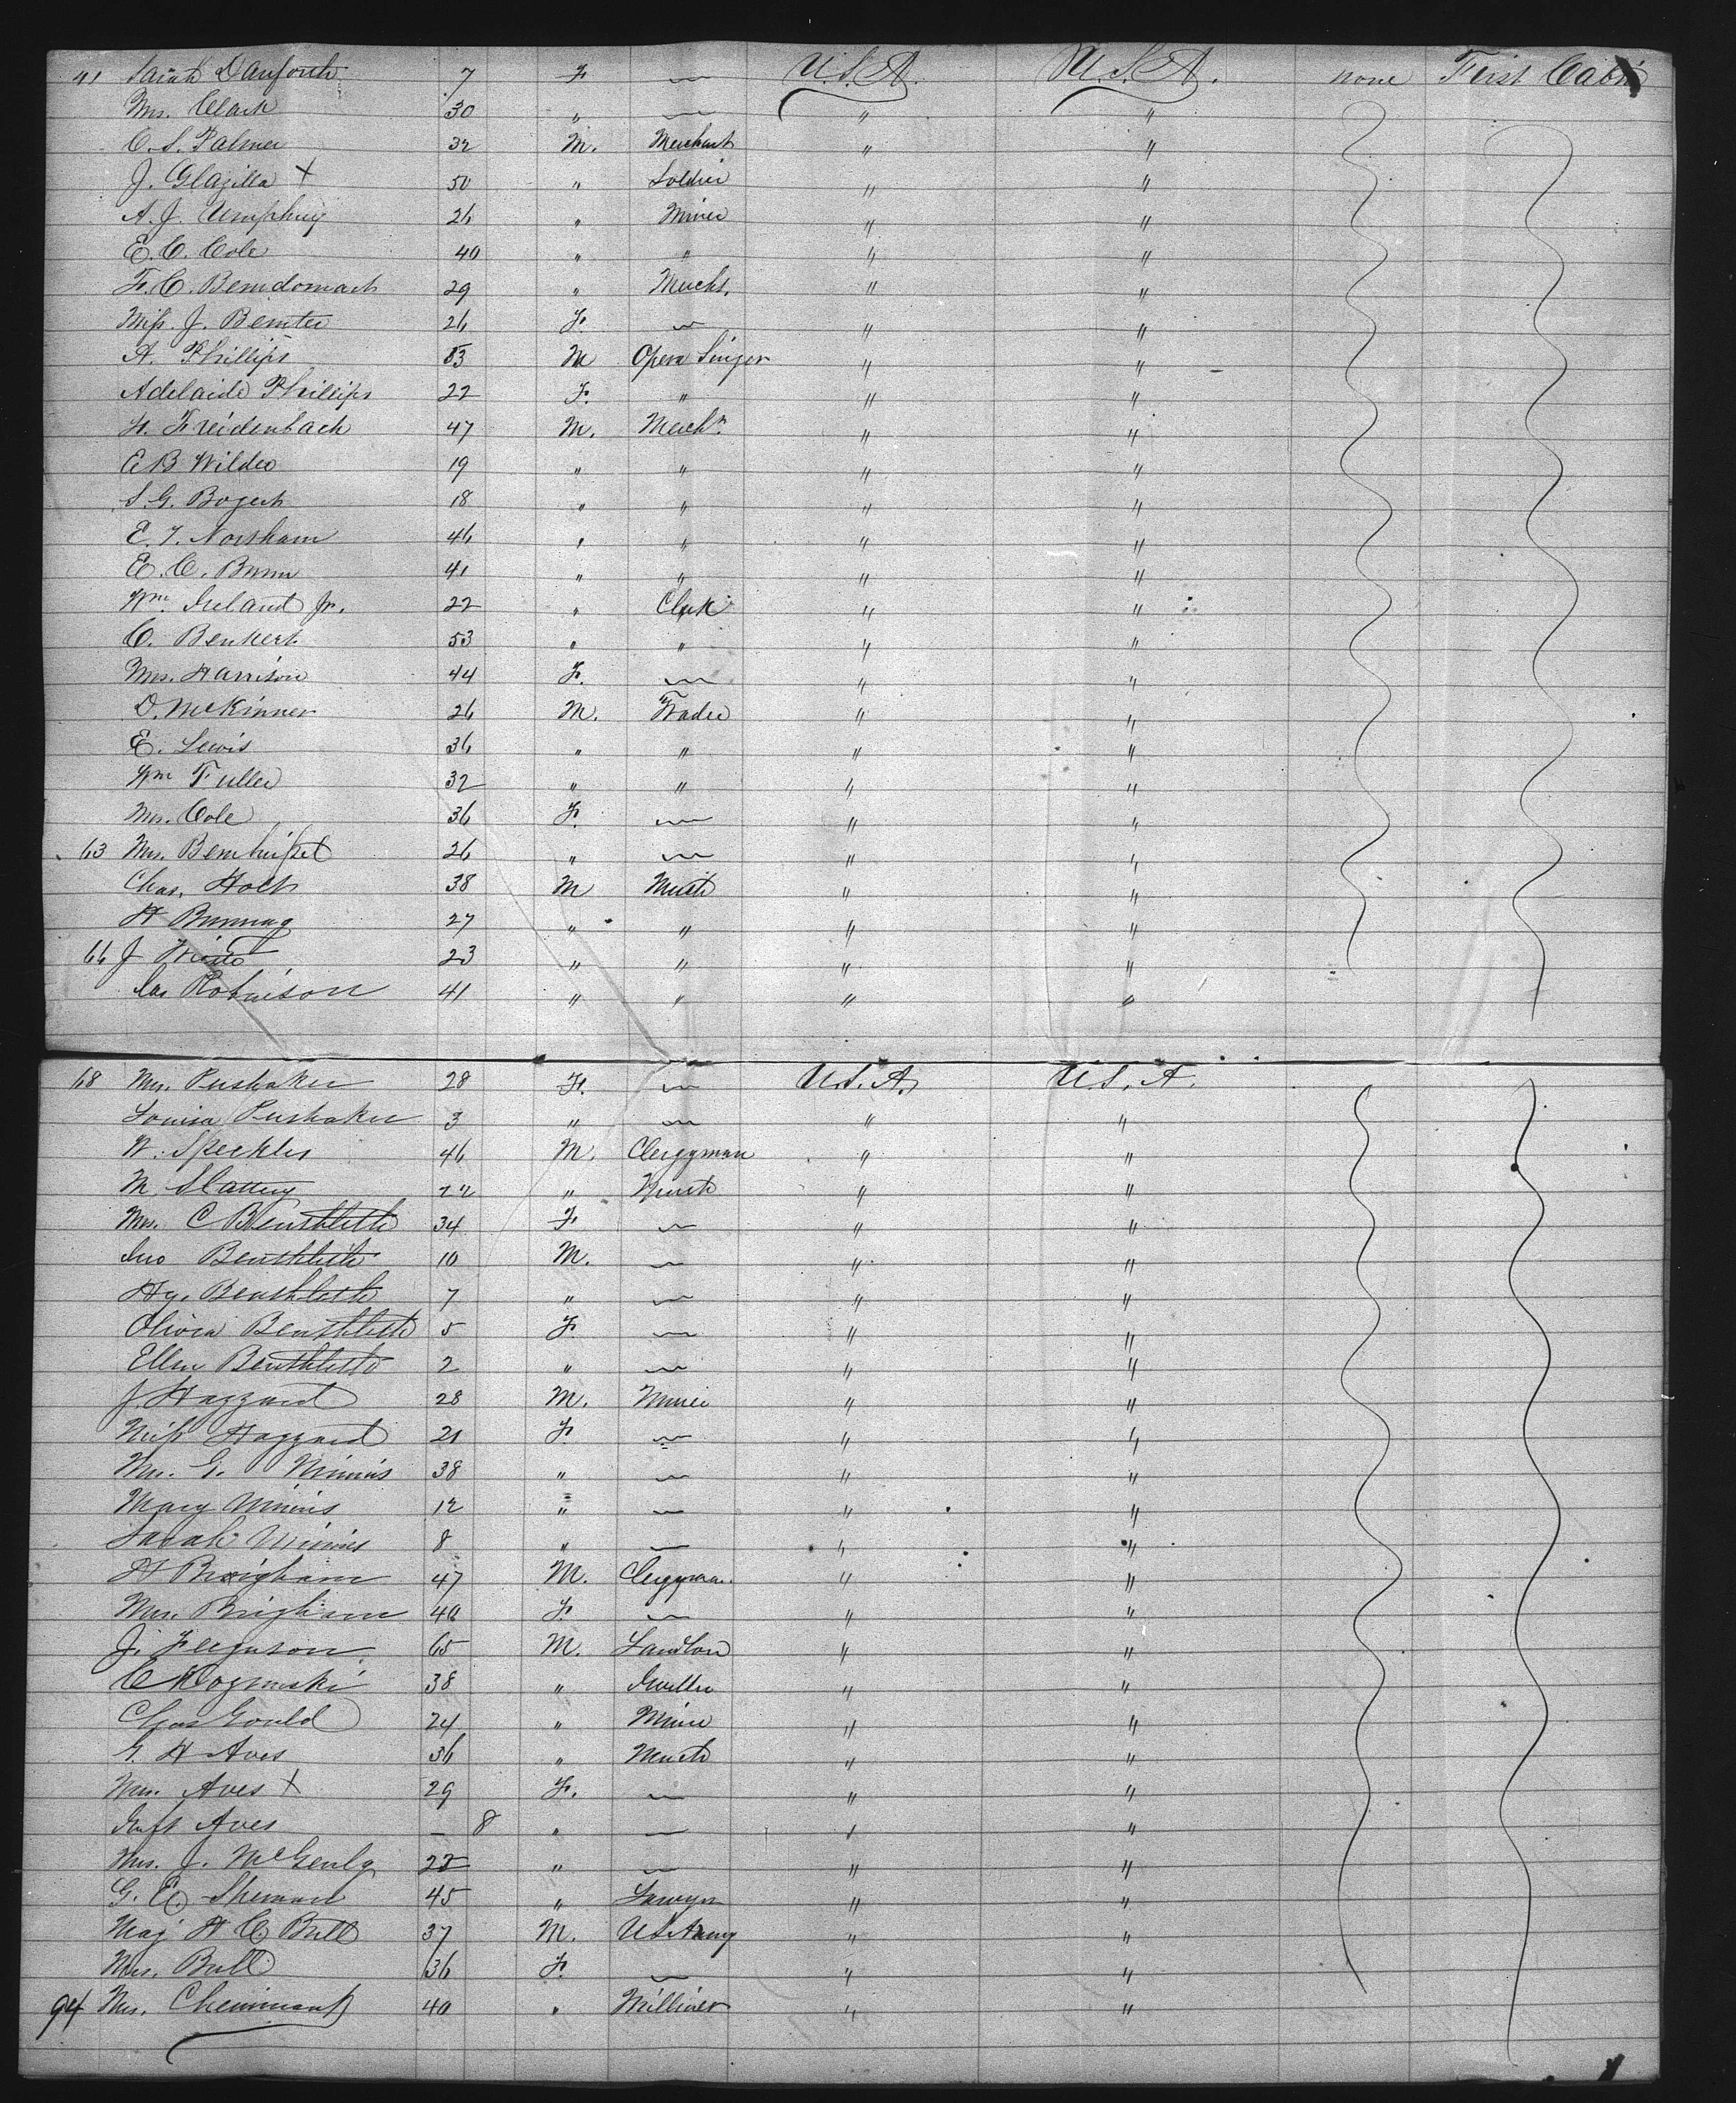 41 Sarah Danforth 7 F. — U.S.A. U.S.A. none First Cabin
Mrs. Clark 30 " — " "
C. S. Palmer 32 M. Merchant " "
J. Glazilla X 50 " Soldier " "
A. J. Umphrey 26 " Miner " "
E. C. Cole 40 " " " "
F. C. Bemdomach 29 " Merchs. " "
Miss. J. Bemter 26 F. — " "
A. Phillips 53 M Opera Singer " "
Adelaide Phillips 22 F. " " "
H. Freidenbach 47 M. Merchn. " "
E B Wilder 19 " " " "
S. G. Bogert 18 " " " "
E. T. Norsham 46 " " " "
E. C. Bunn 41 " " " "
Wm. Ireland Jr. 22 " Clerk " "
C. Benkert 53 " " " "
Mrs. Harrison 44 F. — " "
D. McKinner 26 M. Trader " "
E. Lewis 36 " " " "
Wm Fuller 32 " " " "
Mrs. Cole 36 F. — " "
63 Mrs. 26 " — " "
Chas. Holt 38 M Mercht " "
H 27 " " " "
66 J 23 " " " "
Robinson 41 " " " "
68 Mrs. Pushaker 28 F. — U.S.A. U.S.A.
Louisa Pushaker 3 " — " "
W. Speckles 46 M. Clergyman " "
M. Slattery 22 " Mercht " "
Mrs. C Benthleth 34 F — " "
Jno Benthleth 10 M. — " "
Hy. Benthleth 7 " — " "
Olivia Benthleth 5 F — " "
Ellen Benthleth 2 " — " "
J. Hazzard 28 M. Miner " "
Miss Hazzard 21 F. — " "
Mrs. G. Minnis 38 " — " "
Mary Minnis 12 " — " "
Sarah Minnis 8 " — " "
H Brigham 47 M. Clergyman. " "
Mrs. Brigham 40 F. — " "
J. Ferguson 65 M. Landlord " "
C Kozminski 38 " Jweller " "
Chas Gould 24 " Miner " "
G. H Aves 36 " Mercht " "
Mrs. Aves X 29 F. — " "
Inft Aves — 8 " — " "
Mrs. J. McGenly 22 " — " "
G. E. Sherman 45 " Lawyer " "
Maj H C Bull 37 M. US Army " "
Mrs. Bull 36 F. — " "
94 Mrs. Cheminant 40 " Milliner " "